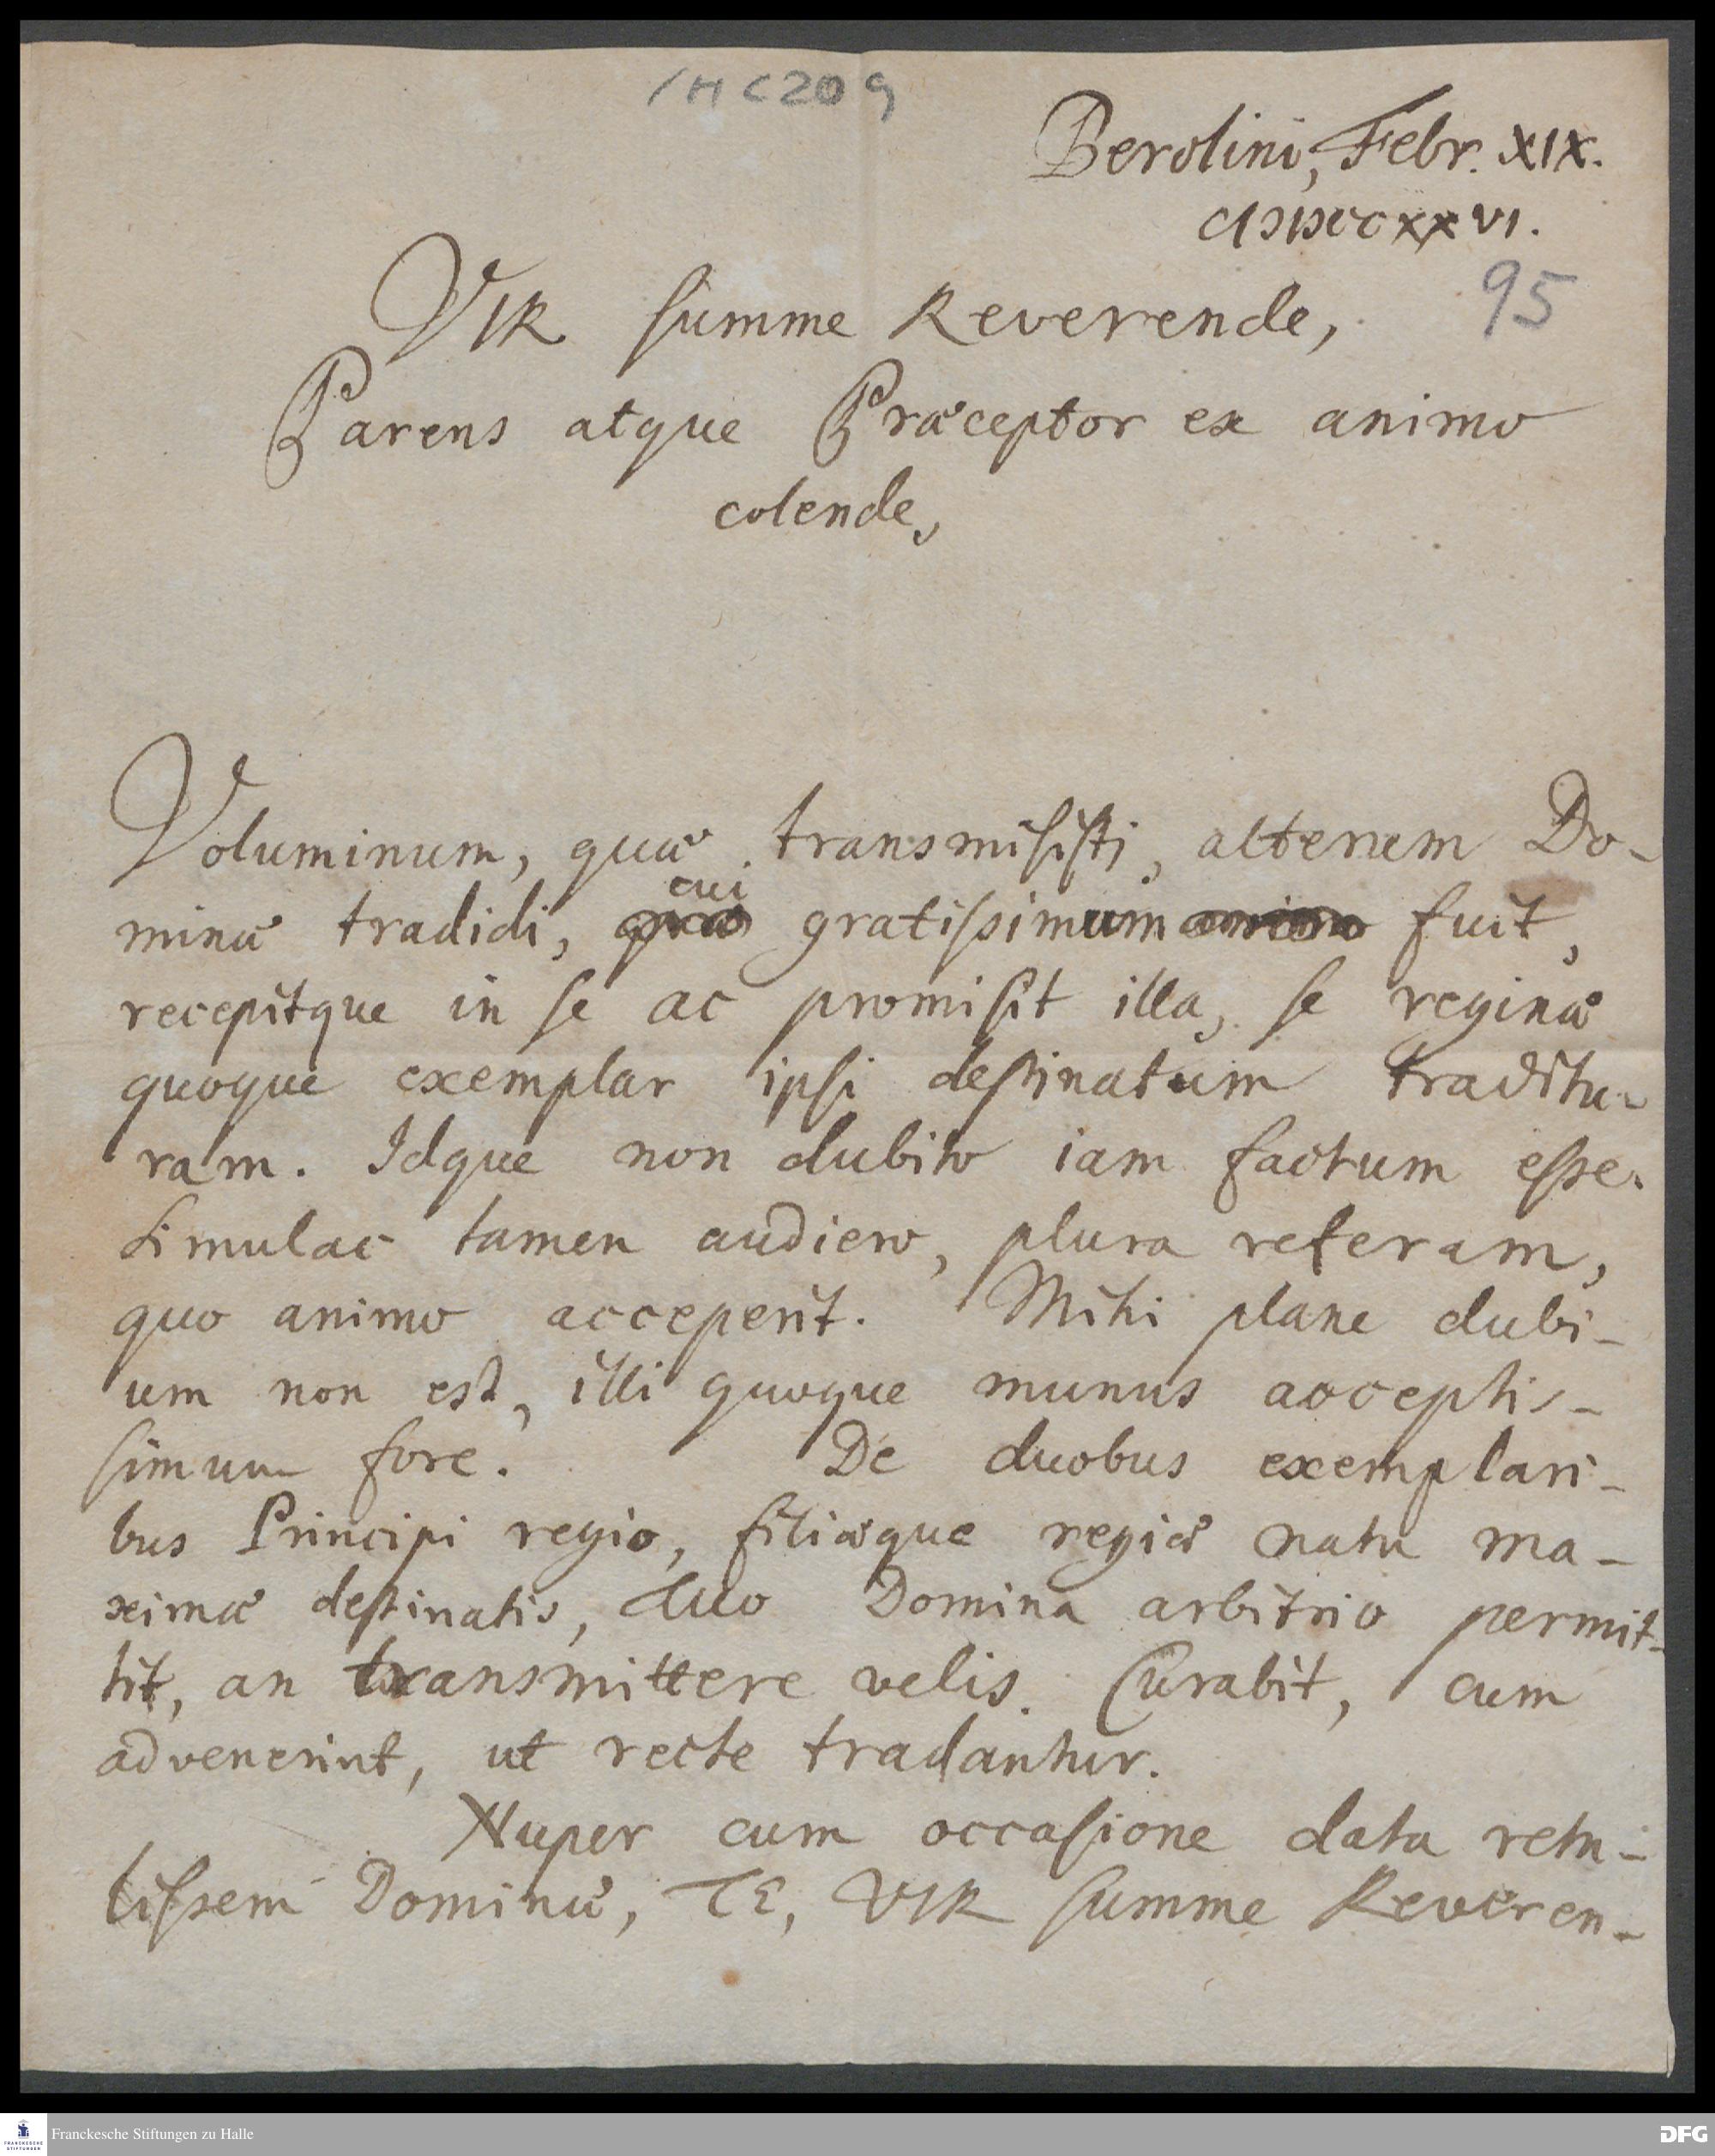 1 H C 209
Berolini, Febr. XIX.
CIƆIƆCCXXVI.
95
VIR summe Reverende,
Parens atque Præceptor ex animo
colende,
Voluminum, quæ transmisisti, alterum Do-
minæ tradidi, cui gratissimum fuit,
recepitque in se ac promisit illa, se reginæ
quoque exemplar ipsi destinatum traditu-
ram. Idque non dubito iam factum esse.
Simulac tamen audiero, plura referam,
quo animo acceperit. Mihi plane dubi-
um non est, illi quoque munus acceptis-
simum fore. De duobus exemplari-
bus Principi regio, filiæque regiæ natu ma-
ximæ destinatis, Tuo Domina arbitrio permit-
tit, an transmittere velis. Curabit, cum
advenerint, ut recte tradantur.
Nuper cum occasione data retu-
lissem Dominæ, TE, VIR summe Reveren-
Franckesche Stiftungen zu Halle
FRANCKESCHE
STIFTUNGEN
DFG